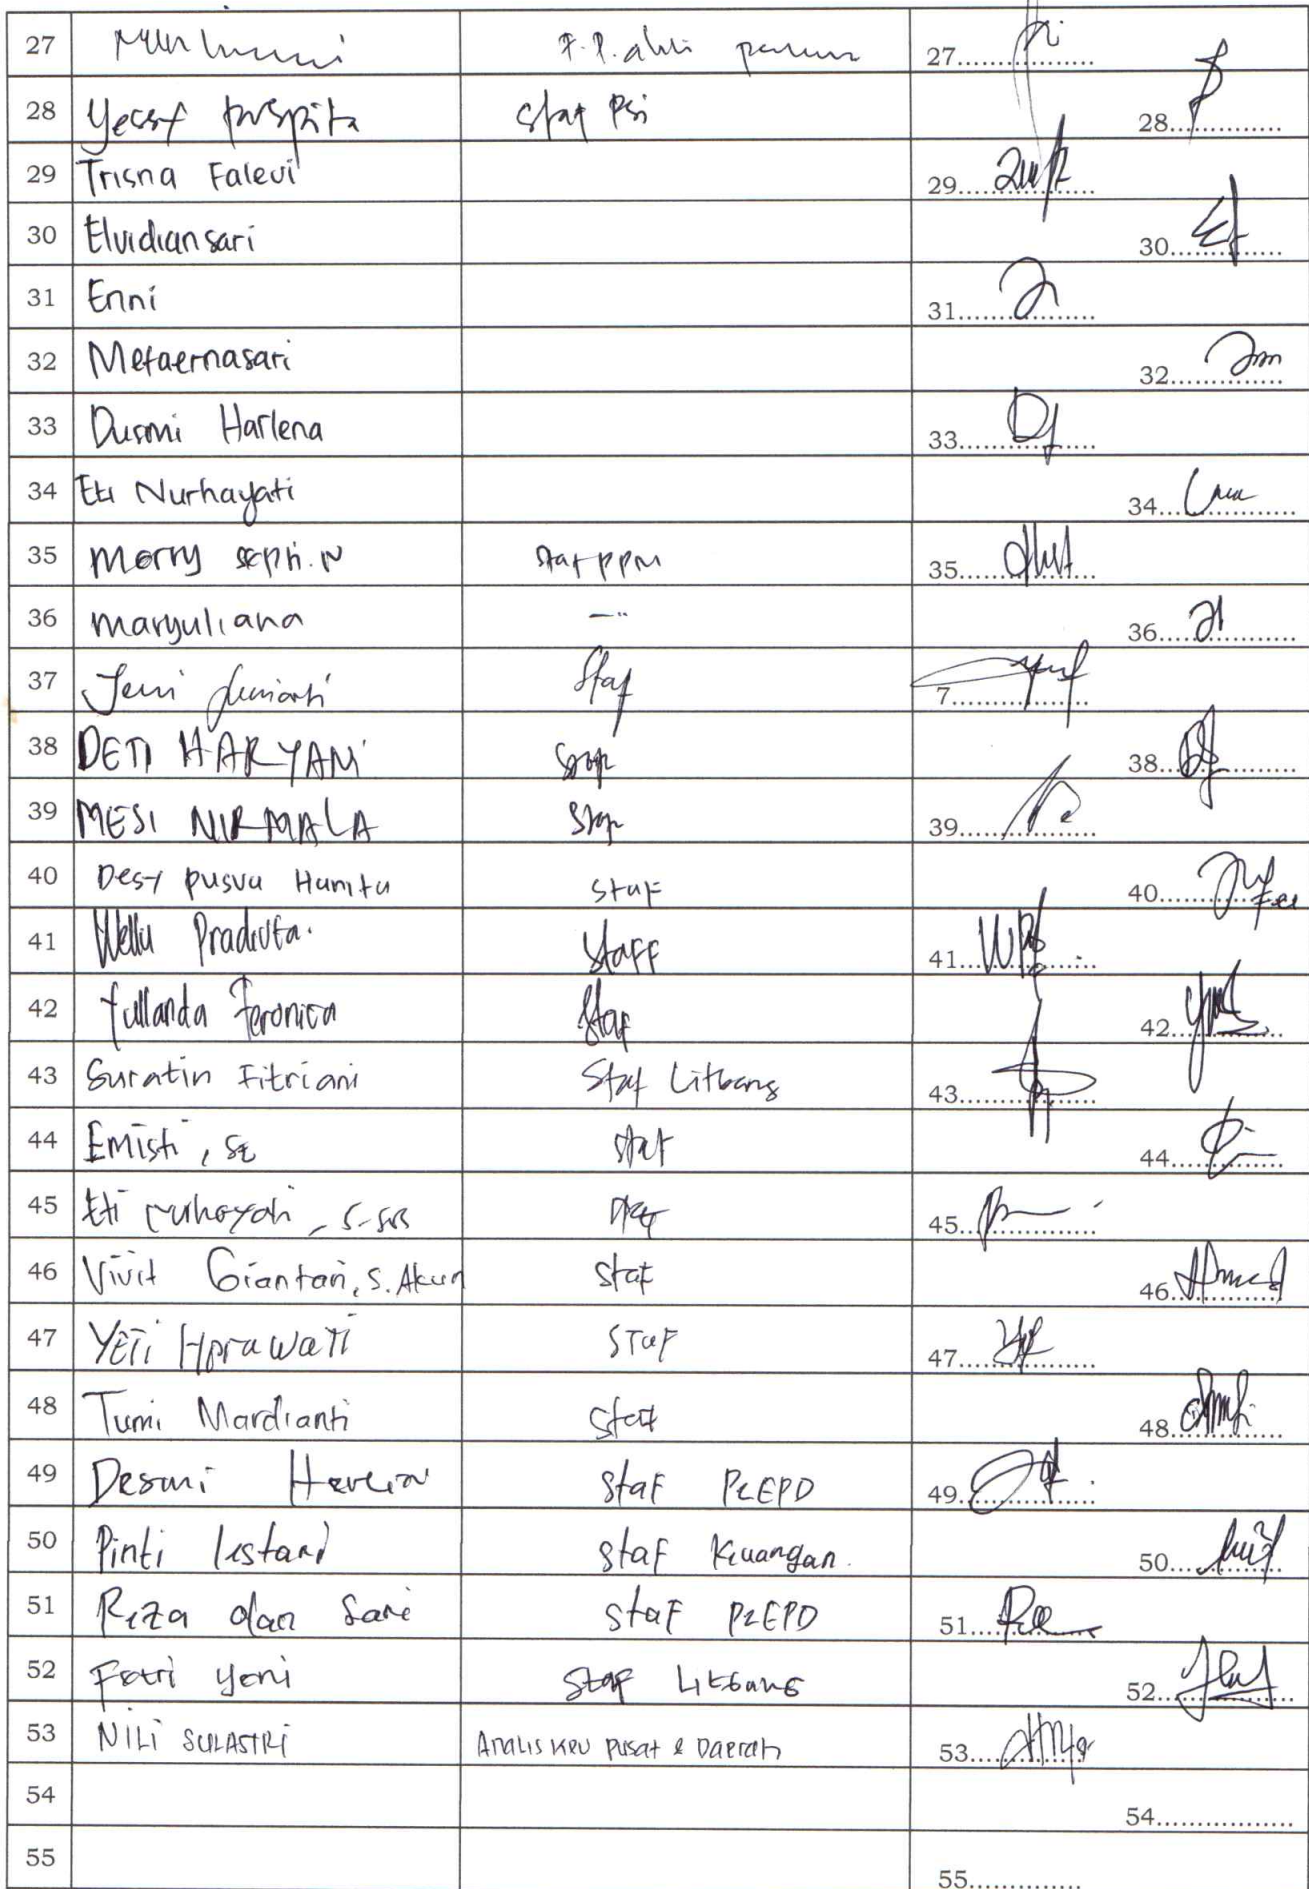 27 F.P. ahli 27
28 Yessy puspita Staf PSI 28
29 Trisna Falevi 29
30 Elvidiansari 30
31 Enni 31
32 Metaernasari 32
33 Dusmi Harlena 33
34 Eti Nurhayati 34
35 Merry Septi. N Staf PPM 35
36 maryuliana —"— 36
37 Jeni Juniarti Staf 7
38 DETI HARYANI Staf 38
39 MESI NIRMALA Staf 39
40 Desy pusva Staf 40
41 Welly Pradivta. Staff 41
42 Yullanda Feronica Staf 42
43 Suratin Fitriani Staf Litbang 43
44 Emisti, SE staf 44
45 Eti nurhayati, S.Sos 45
46 Vivit Giantari, S.Akun Staf 46
47 YETI Herawati STaF 47
48 Tumi Mardianti Staf 48
49 Desmi Staf P2EPD 49
50 Pinti lestari staf Keuangan. 50
51 Reza olan Sari staf P2EPD 51
52 Fetri yeni Staf Litbang 52
53 NILI SULASTRI Analis Keu pusat & Daerah 53
54 54
55 55